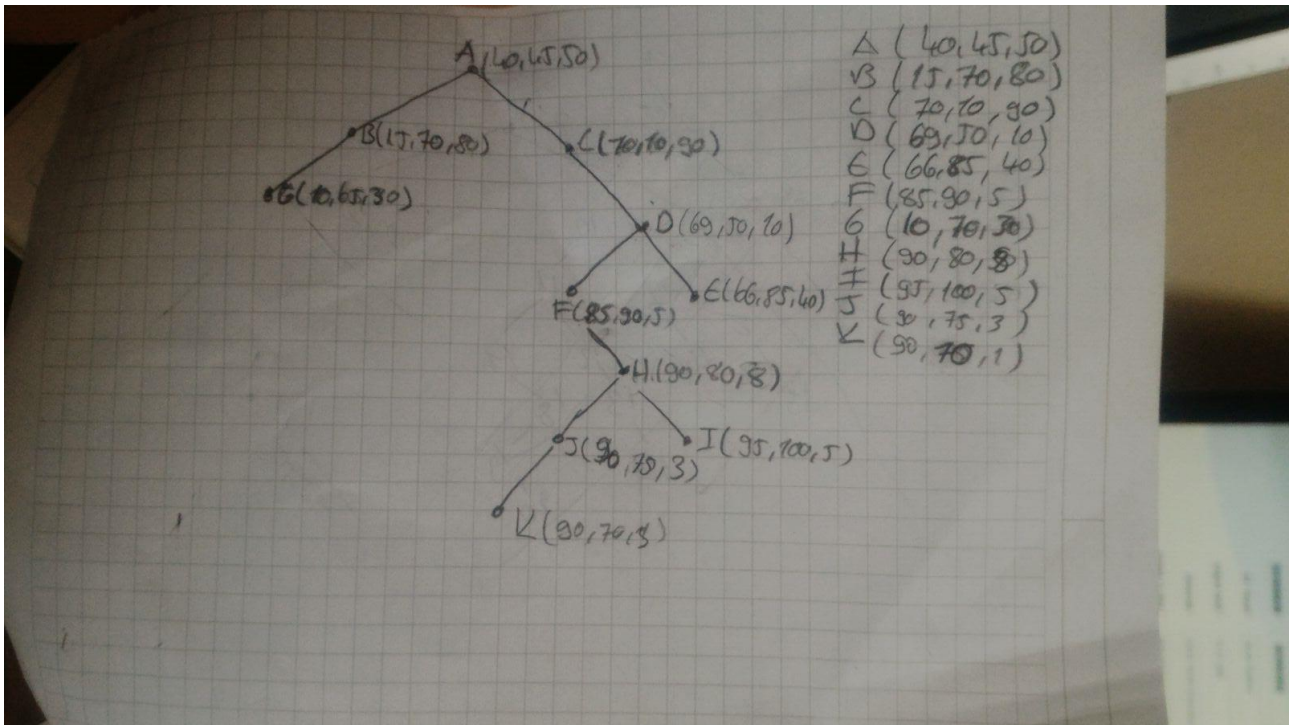 A(40,45,50)
B(15,70,80)
C(70,10,90)
G(10,65,30)
D(69,50,10)
F(85,90,5)
E(66,85,40)
H(90,80,8)
J(90,75,3)
I(95,100,5)
K(90,70,
A (40,45,50)
B (15,70,80)
C (70,10,90)
D (69,50,10)
E (66,85,40)
F (85,90,5)
G (10,70,30)
H (90,80,8)
I (95,100,5)
J (90,75,3)
K (90,70,1)